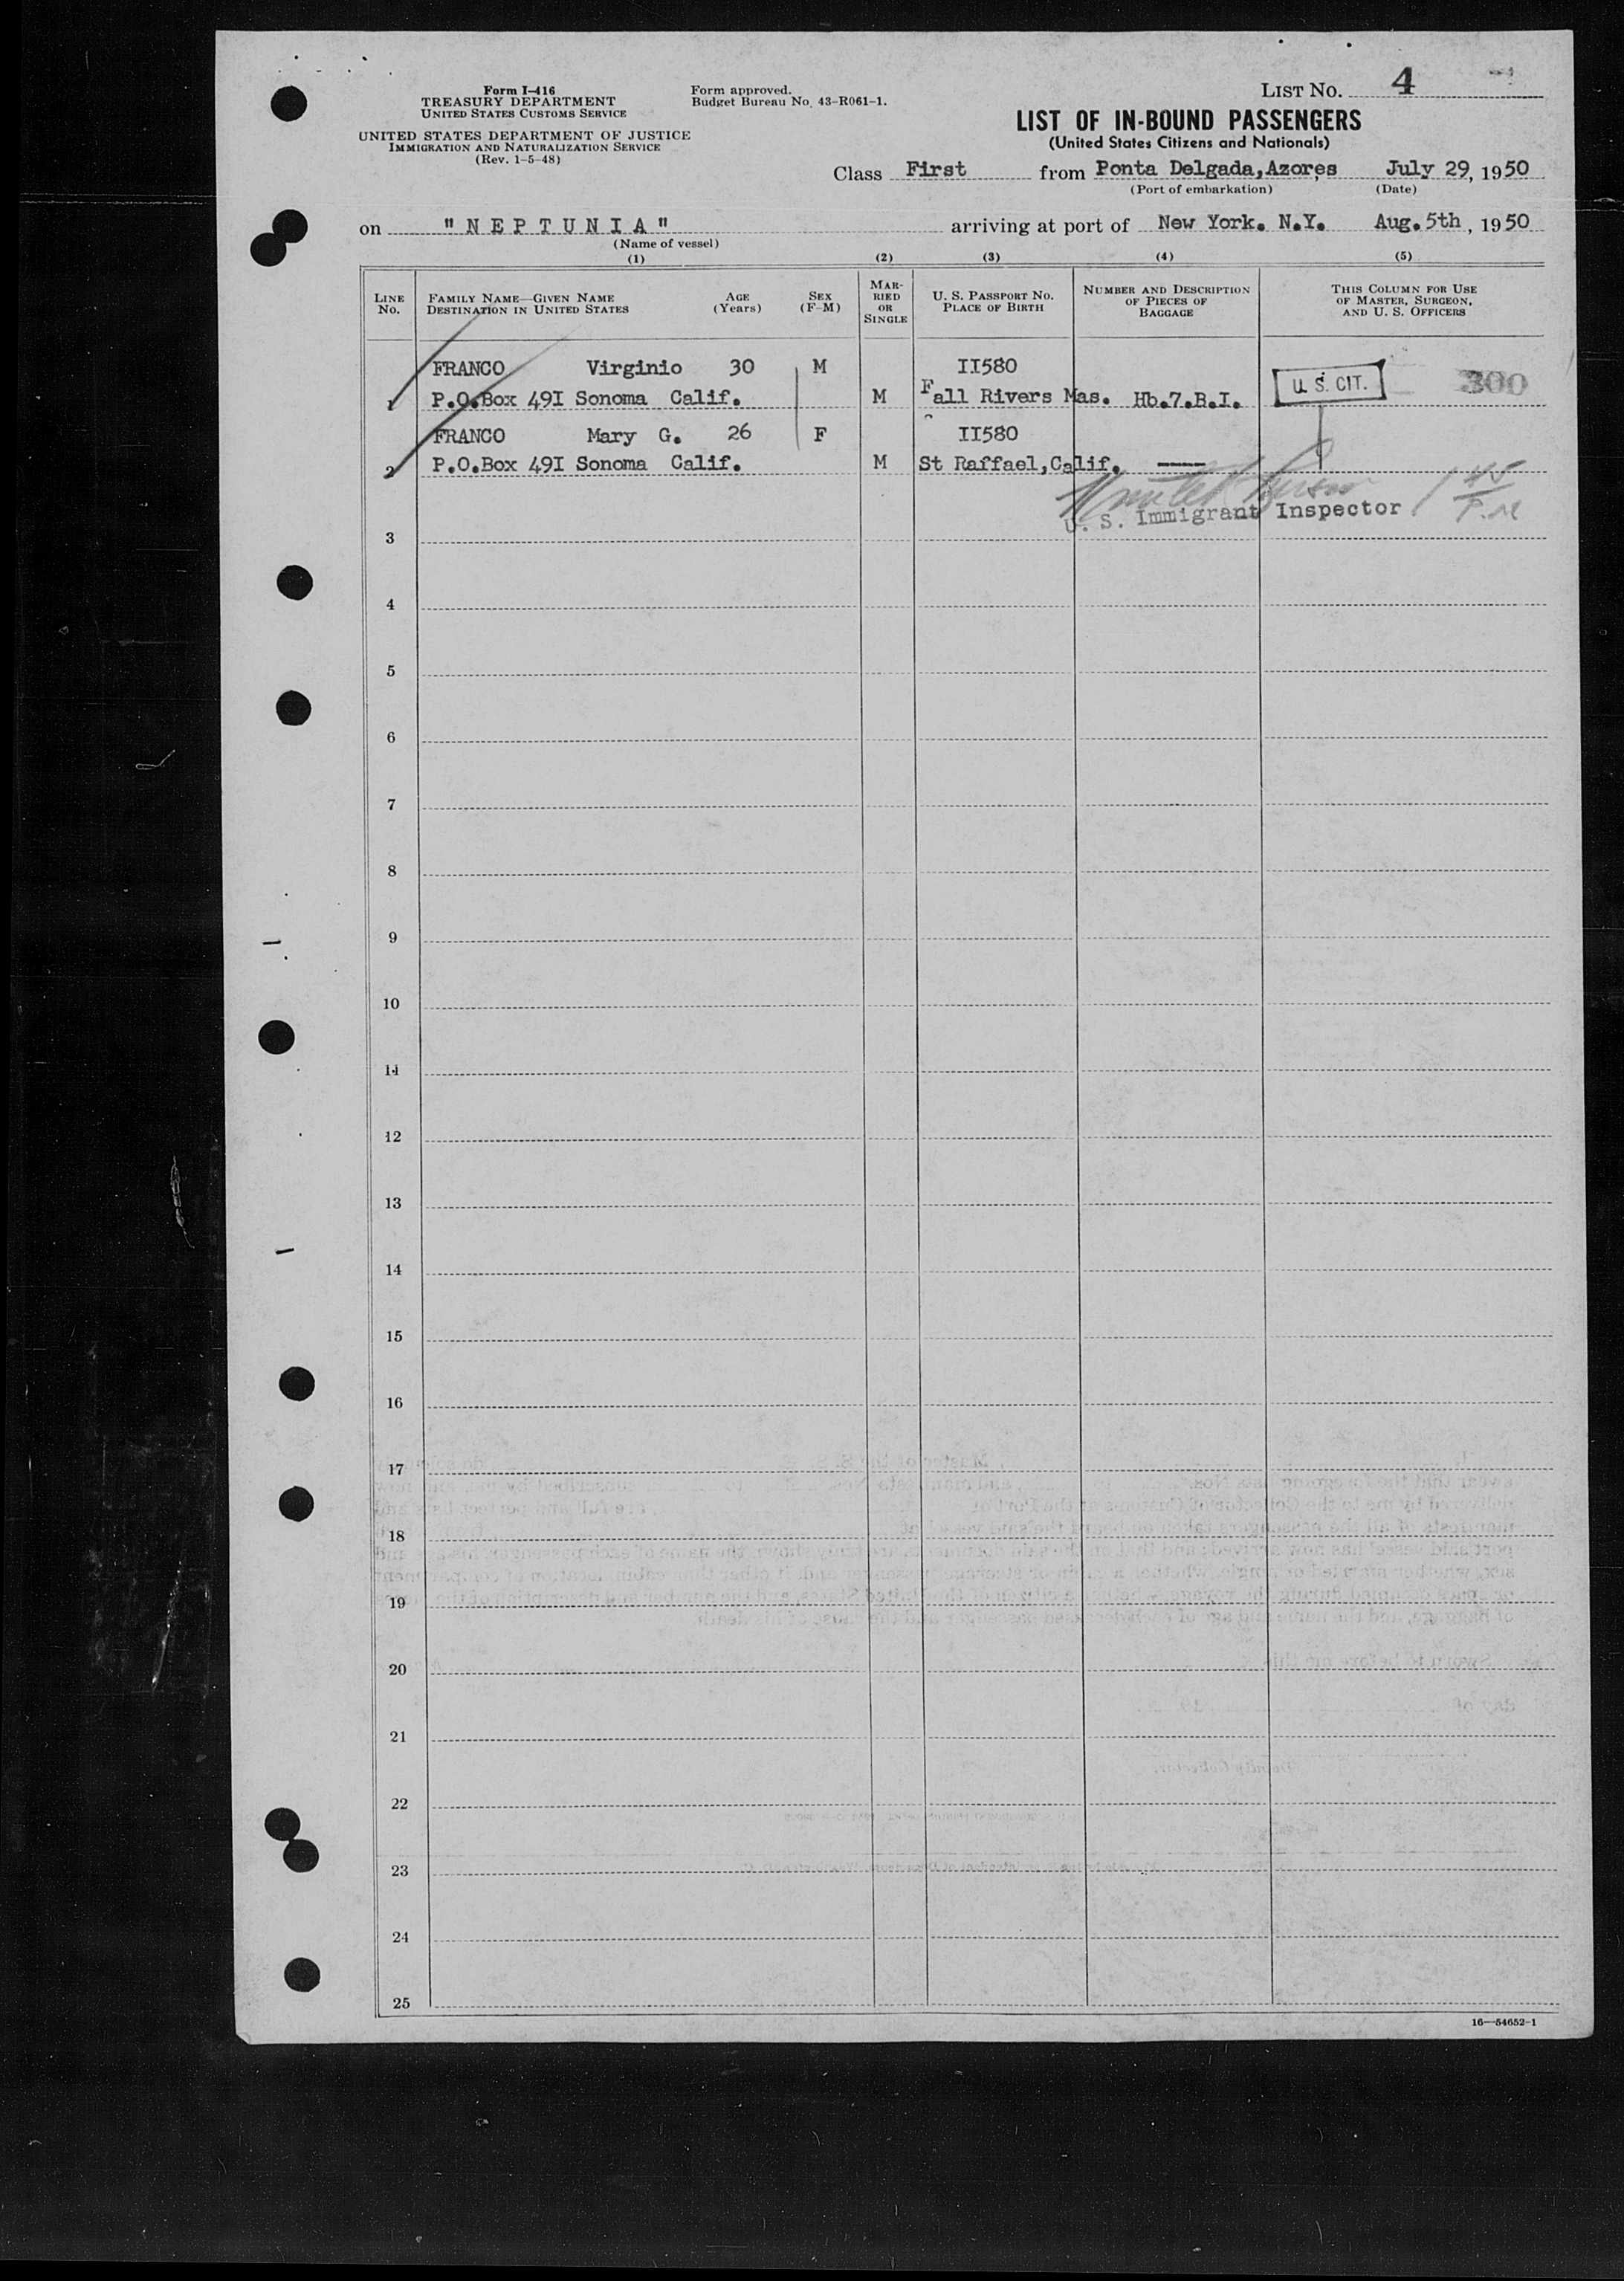 Form I-416
TREASURY DEPARTMENT
UNITED STATES CUSTOMS SERVICE
UNITED STATES DEPARTMENT OF JUSTICE
IMMIGRATION AND NATURALIZATION SERVICE
(Rev. 1-5-48)
Form approved.
Budget Bureau No. 43-R061-1.
LIST NO. 4
LIST OF IN-BOUND PASSENGERS
(United States Citizens and Nationals)
Class First from Ponta Delgada, Azores July 29, 1950
(Port of embarkation) (Date)
on "NEPTUNIA" arriving at port of New York. N.Y. Aug. 5th, 1950
(Name of vessel)
(1) (2) (3) (4) (5)
LINE NO.
FAMILY NAME—GIVEN NAME
DESTINATION IN UNITED STATES
AGE (Years)
SEX (F-M)
MARRIED OR SINGLE
U. S. PASSPORT NO.
PLACE OF BIRTH
NUMBER AND DESCRIPTION OF PIECES OF BAGGAGE
THIS COLUMN FOR USE OF MASTER, SURGEON, AND U. S. OFFICERS
FRANCO Virginio 30 M II580
1 P.O.Box 49I Sonoma Calif. M Fall Rivers Mas. Hb.7.B.I. U. S. CIT. 300
FRANCO Mary G. 26 F II580
2 P.O.Box 49I Sonoma Calif. M St Raffael,Calif. ----
U. S. Immigrant Inspector 1 45 P.M
3
4
5
6
7
8
9
10
11
12
13
14
15
16
17
18
19
20
21
22
23
24
25
16—54652-1